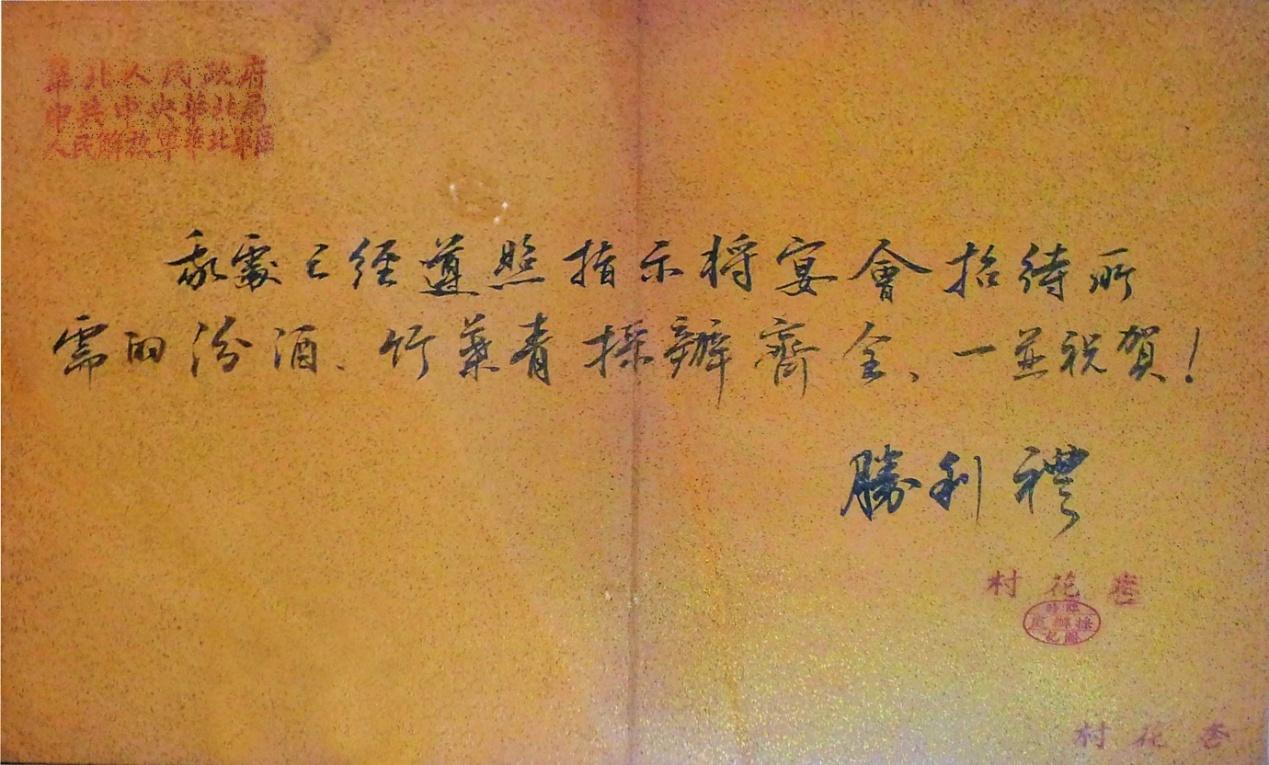 華北人民政府
中共中央華北局
人民解放軍華北軍區
我處已經遵照指示將宴會招待所
需的汾酒、竹葉青採辦齊全、一並祝賀！
勝利禮
村花杏
村花杏